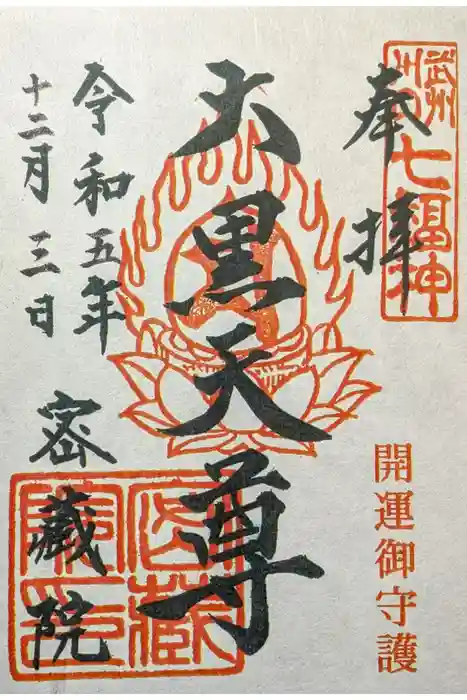 奉拝
武州
七福神
開運御守護
大黒天尊
令和五年
十二月三日
密蔵院